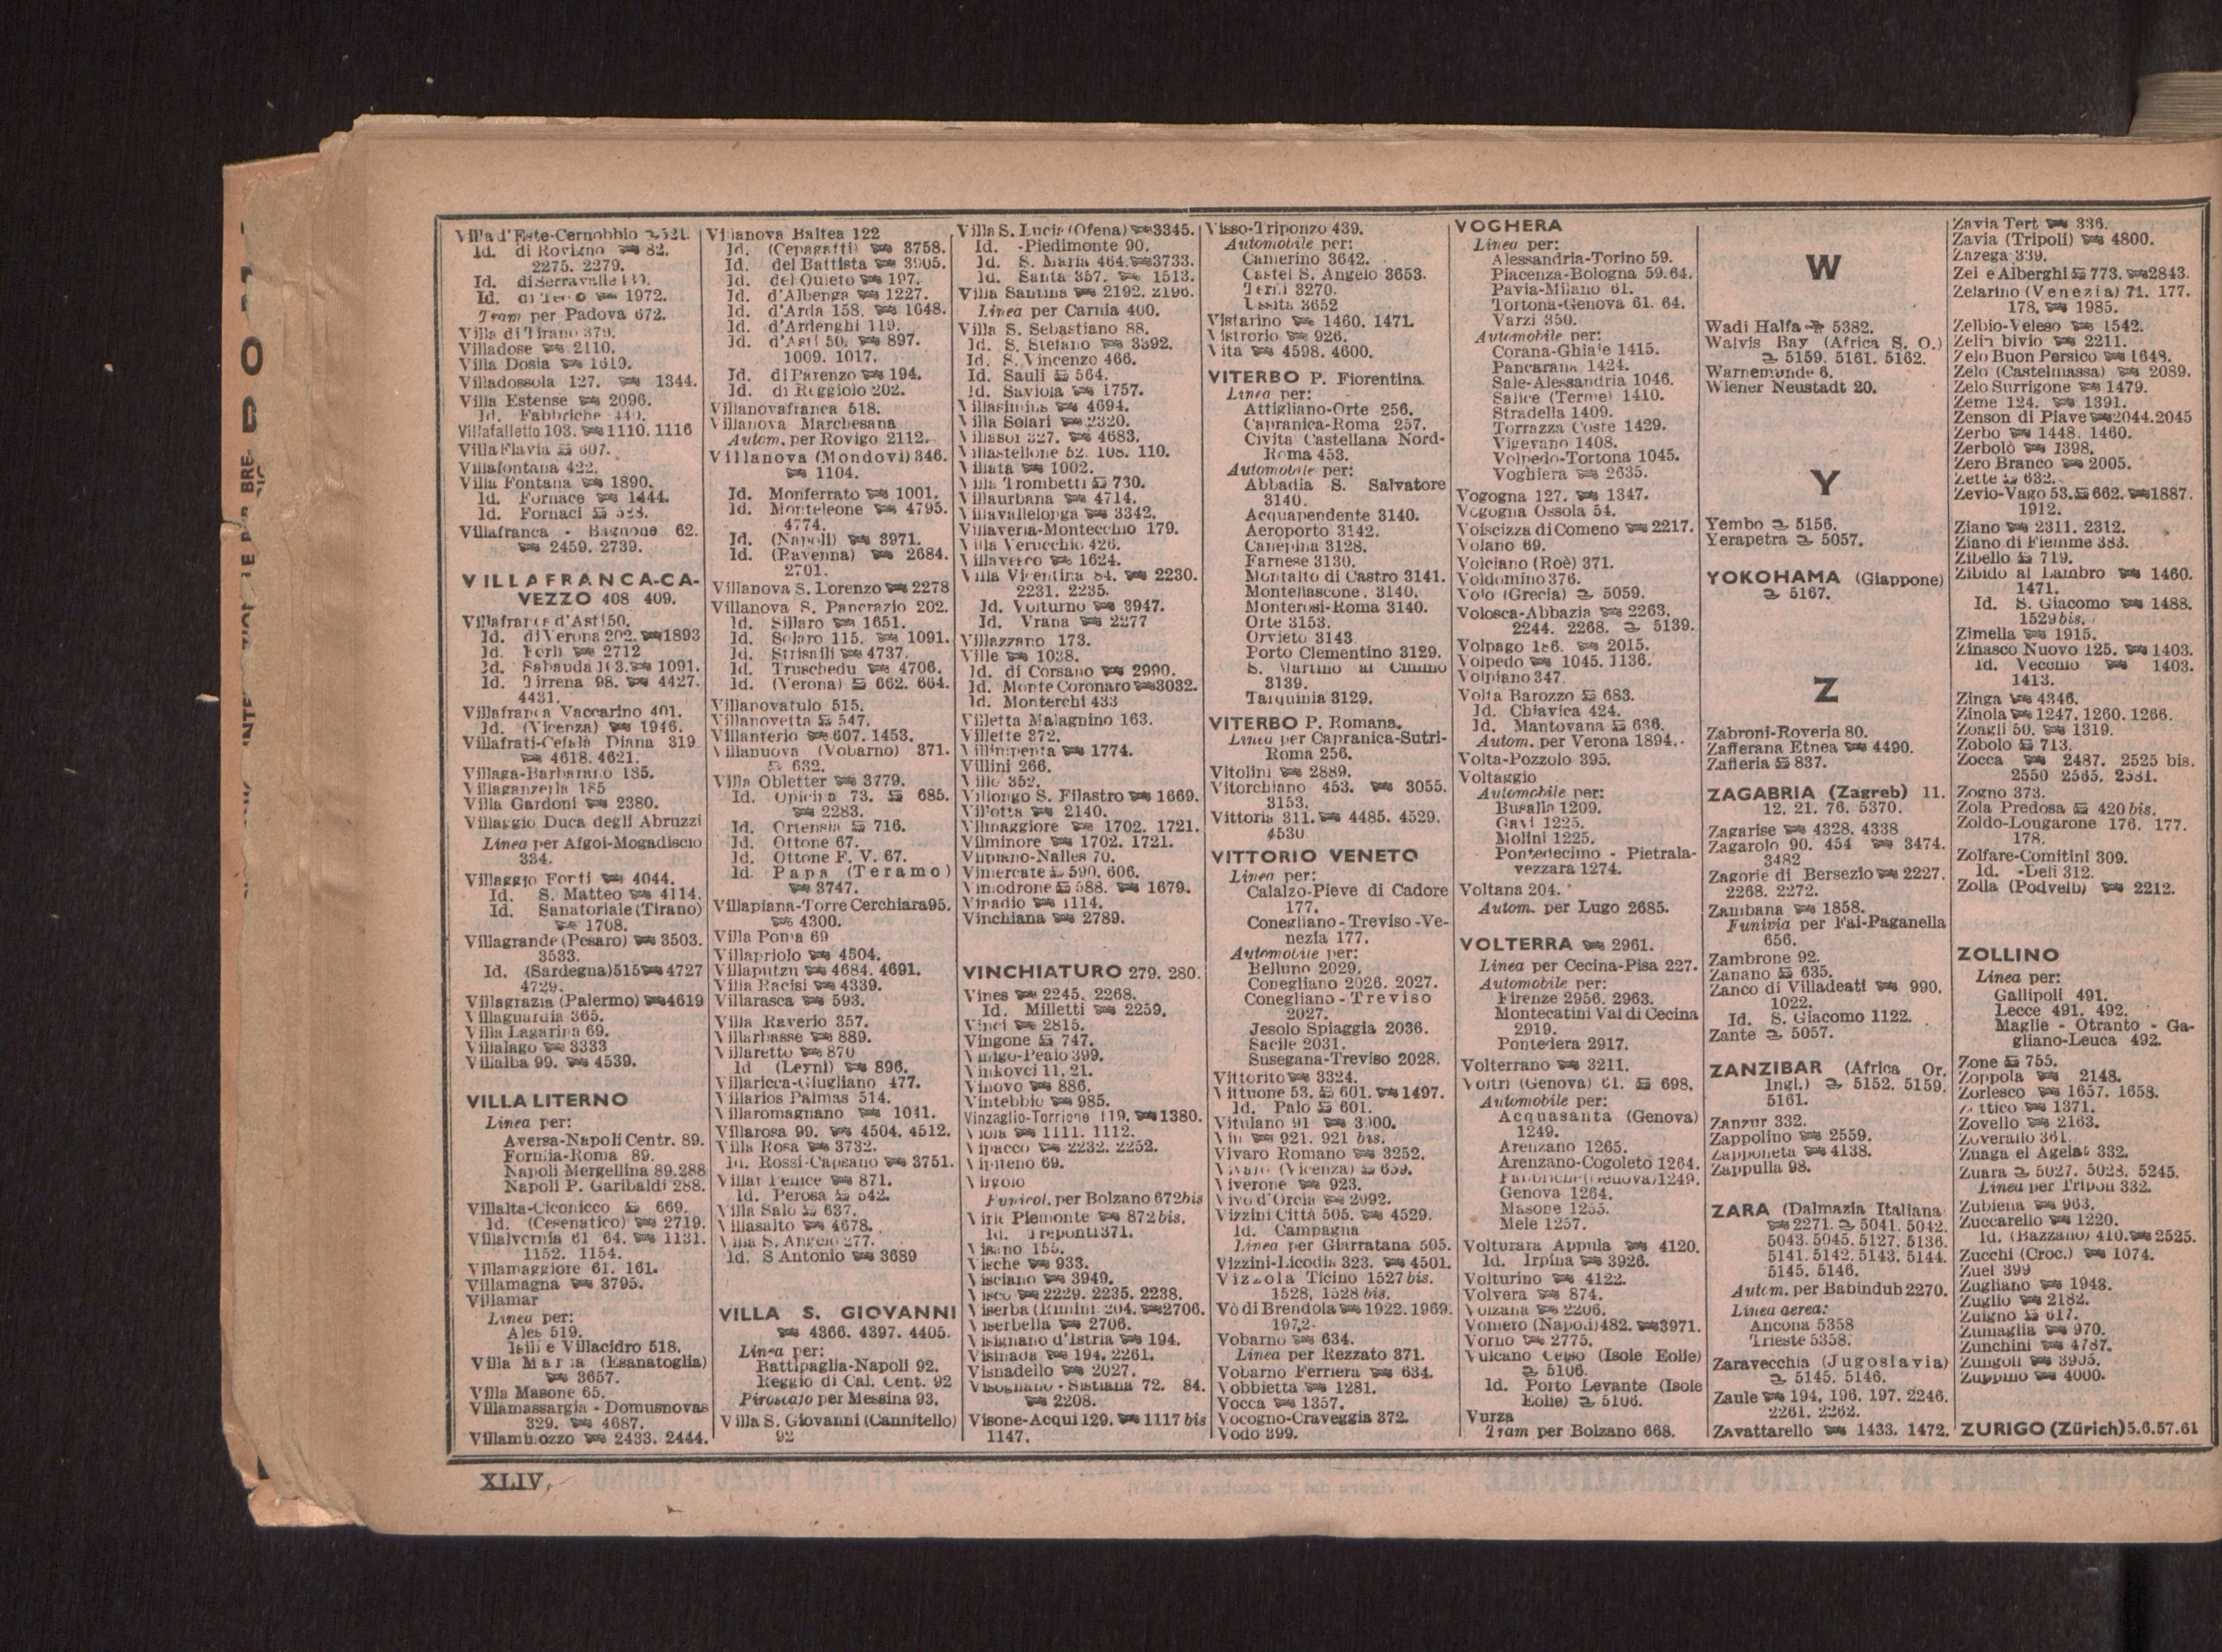 Villa d'Este-Cernobbio 521.
Id. di Rovigno 82.
2275. 2279.
Id. di Serravalle
Id. 1972.
Tram per Padova 672.
Villa di Tirano 379.
Villadose 2110.
Villa Dosia 1619.
Villadossola 127. 1344.
Villa Estense 2096.
Id. Fabbriche 440.
Villafalletto 103. 1110. 1116
Villa Flavia 607.
Villafontana 422.
Villa Fontana 1890.
Id. Fornace 1444.
Id. Fornaci 528.
Villafranca - Bagnone 62.
2459. 2739.
VILLAFRANCA-CA-
VEZZO 408 409.
Villafranca d'Asti 50.
Id. di Verona 202. 1893
Id. Forlì 2712
Id. Sabauda 103. 1091.
Id. Tirrena 98. 4427.
4431.
Villafranca Vaccarino 401.
Id. (Vicenza) 1946.
Villafrati-Cefalà Diana 319
4618. 4621.
Villaga-Barbarano 185.
Villaganzerla 185
Villa Gardoni 2380.
Villaggio Duca degli Abruzzi
Linea per Afgoi-Mogadiscio
334.
Villaggio Forti 4044.
Id. S. Matteo 4114.
Id. Sanatoriale (Tirano)
1708.
Villagrande (Pesaro) 3503.
3533.
Id. (Sardegna) 515 4727
4729.
Villagrazia (Palermo) 4619
Villaguardia 365.
Villa Lagarina 69.
Villalago 3333
Villalba 99. 4539.
VILLA LITERNO
Linea per:
Aversa-Napoli Centr. 89.
Formia-Roma 89.
Napoli Mergellina 89.288
Napoli P. Garibaldi 288.
Villalta-Ciconicco 669.
Id. (Cesenatico) 2719.
Villalvernia 61 64. 1131.
1152. 1154.
Villamaggiore 61. 161.
Villamagna 3795.
Villamar
Linea per:
Ales 519.
Isili e Villacidro 518.
Villa Maria (Esanatoglia)
3657.
Villa Masone 65.
Villamassargia - Domusnovas
329. 4687.
Villambrozzo 2433. 2444.
Villanova Baltea 122
Id. (Cepagatti) 3758.
Id. del Battista 3905.
Id. del Quieto 197.
Id. d'Albenga 1227.
Id. d'Arda 158. 1648.
Id. d'Ardenghi 119.
Id. d'Asti 50. 897.
1009. 1017.
Id. di Parenzo 194.
Id. di Reggiolo 202.
Villanovafranca 518.
Villanova Marchesana
Autom. per Rovigo 2112.
Villanova (Mondovì) 346.
1104.
Id. Monferrato 1001.
Id. Monteleone 4795.
4774.
Id. (Napoli) 3971.
Id. (Ravenna) 2684.
2701.
Villanova S. Lorenzo 2278
Villanova S. Pancrazio 202.
Id. Sillaro 1651.
Id. Solaro 115. 1091.
Id. Strisaili 4737.
Id. Truschedu 4706.
Id. (Verona) 662. 664.
Villanovatulo 515.
Villanovetta 547.
Villanterio 607. 1453.
Villanuova (Vobarno) 371.
632.
Villa Obletter 3779.
Id. Opicina 73. 685.
2283.
Id. Ortensia 716.
Id. Ottone 67.
Id. Ottone F. V. 67.
Id. Papa (Teramo)
3747.
Villapiana-Torre Cerchiara 95.
4300.
Villa Poma 69
Villapriolo 4504.
Villaputzu 4684. 4691.
Villa Racisi 4339.
Villarasca 593.
Villa Raverio 357.
Villarbasse 889.
Villaretto 870
Id (Leynì) 896.
Villaricca-Giugliano 477.
Villarios Palmas 514.
Villaromagnano 1041.
Villarosa 99. 4504. 4512.
Villa Rosa 3732.
Id. Rossi-Capsano 3751.
Villar Pellice 871.
Id. Perosa 542.
Villa Salo 637.
Villasalto 4678.
Villa S. Angelo 277.
Id. S Antonio 3689
VILLA S. GIOVANNI
4366. 4397. 4405.
Linea per:
Battipaglia-Napoli 92.
Reggio di Cal. Cent. 92
Piroscafo per Messina 93.
Villa S. Giovanni (Cannitello)
92
Villa S. Lucia (Ofena) 3345.
Id. -Piedimonte 90.
Id. S. Maria 464. 3733.
Id. Santa 357. 1513.
Villa Santina 2192. 2196.
Linea per Carnia 400.
Villa S. Sebastiano 88.
Id. S. Stefano 3392.
Id. S. Vincenzo 466.
Id. Sauli 564.
Id. Saviola 1757.
Villasimius 4694.
Villa Solari 2320.
Villasor 327. 4683.
Villastellone 52. 108. 110.
Villata 1002.
Villa Trombetti 730.
Villaurbana 4714.
Villavallelonga 3342.
Villaverla-Montecchio 179.
Villa Verucchio 426.
Villaverco 1624.
Villa Vicentina 84. 2230.
2231. 2235.
Id. Volturno 3947.
Id. Vrana 2277
Villazzano 173.
Ville 1038.
Id. di Corsano 2990.
Id. Monte Coronaro 3032.
Id. Monterchi 433
Villetta Malagnino 163.
Villette 372.
Villimpenta 1774.
Villini 266.
Villo 352.
Villongo S. Filastro 1669.
Villotta 2140.
Vilmaggiore 1702. 1721.
Vilminore 1702. 1721.
Vilpiano-Nalles 70.
Vimercate 590. 606.
Vimodrone 588. 1679.
Vinadio 1114.
Vinchiana 2789.
VINCHIATURO 279. 280.
Vines 2245. 2268.
Id. Milletti 2259.
Vinci 2815.
Vingone 747.
Vinigo-Peaio 399.
Vinkovci 11. 21.
Vinovo 886.
Vintebbio 985.
Vinzaglio-Torrione 119. 1380.
Viola 1111. 1112.
Vipacco 2232. 2252.
Vipiteno 69.
Virgolo
Funicol. per Bolzano 672bis
Virle Piemonte 872bis.
Id. Treponti 371.
Visano 155.
Vische 933.
Visciano 3949.
Visco 2229. 2235. 2238.
Viserba (Rimini) 204. 2706.
Viserbella 2706.
Visignano d'Istria 194.
Visinada 194. 2261.
Visnadello 2027.
Visogliano - Sistiana 72. 84.
2208.
Visone-Acqui 129. 1117 bis
1147.
Visso-Triponzo 439.
Automobile per:
Camerino 3642.
Castel S. Angelo 3653.
Terni 3270.
Ussita 3652
Vistarino 1460. 1471.
Vistrorio 926.
Vita 4598. 4600.
VITERBO P. Fiorentina.
Linea per:
Attigliano-Orte 256.
Capranica-Roma 257.
Civita Castellana Nord-
Roma 453.
Automobile per:
Abbadia S. Salvatore
3140.
Acquapendente 3140.
Aeroporto 3142.
Canepina 3128.
Farnese 3130.
Montalto di Castro 3141.
Montefiascone. 3140.
Monterosi-Roma 3140.
Orte 3153.
Orvieto 3143
Porto Clementino 3129.
S. Martino al Cimino
3139.
Tarquinia 3129.
VITERBO P. Romana.
Linea per Capranica-Sutri-
Roma 256.
Vitolini 2889.
Vitorchiano 453. 3055.
3153.
Vittoria 311. 4485. 4529.
4530
VITTORIO VENETO
Linea per:
Calalzo-Pieve di Cadore
177.
Conegliano-Treviso-Ve-
nezia 177.
Automobile per:
Belluno 2029.
Conegliano 2026. 2027.
Conegliano-Treviso
2027.
Jesolo Spiaggia 2036.
Sacile 2031.
Susegana-Treviso 2028.
Vittorito 3324.
Vittuone 53. 601. 1497.
Id. Palo 601.
Vitulano 91 3900.
Viù 921. 921 bis.
Vivaro Romano 3252.
Vivaro (Vicenza) 659.
Viverone 923.
Vivo d'Orcia 2992.
Vizzini Città 505. 4529.
Id. Campagna
Linea per Giarratana 505.
Vizzini-Licodia 323. 4501.
Vizzola Ticino 1527bis.
1528, 1528 bis.
Vò di Brendola 1922. 1969.
1972.
Vobarno 634.
Linea per Rezzato 371.
Vobarno Ferriera 634.
Vobbietta 1281.
Vocca 1357.
Vocogno-Craveggia 372.
Vodo 399.
VOGHERA
Linea per:
Alessandria-Torino 59.
Piacenza-Bologna 59.64.
Pavia-Milano 61.
Tortona-Genova 61. 64.
Varzi 350.
Automobile per:
Corana-Ghiaie 1415.
Pancarana 1424.
Sale-Alessandria 1046.
Salice (Terme) 1410.
Stradella 1409.
Torrazza Coste 1429.
Vigevano 1408.
Volpedo-Tortona 1045.
Voghiera 2635.
Vogogna 127. 1347.
Vogogna Ossola 54.
Voiscizza di Comeno 2217.
Volano 69.
Volciano (Roè) 371.
Voldomino 376.
Volo (Grecia) 5059.
Volosca-Abbazia 2263.
2244. 2268. 5139.
Volpago 186. 2015.
Volpedo 1045. 1136.
Volpiano 347.
Volta Barozzo 683.
Id. Chiavica 424.
Id. Mantovana 636.
Autom. per Verona 1894.
Volta-Pozzolo 395.
Voltaggio
Automobile per:
Busalla 1209.
Gavi 1225.
Molini 1225.
Pontedecimo - Pietrala-
vezzara 1274.
Voltana 204.
Autom. per Lugo 2685.
VOLTERRA 2961.
Linea per Cecina-Pisa 227.
Automobile per:
Firenze 2956. 2963.
Montecatini Val di Cecina
2919.
Pontedera 2917.
Volterrano 3211.
Voltri (Genova) 61. 698.
Automobile per:
Acquasanta (Genova)
1249.
Arenzano 1265.
Arenzano-Cogoleto 1264.
Fabbriche (Genova) 1249.
Genova 1264.
Masone 1255.
Mele 1257.
Volturara Appula 4120.
Id. Irpina 3926.
Volturino 4122.
Volvera 874.
Volzana 2206.
Vomero (Napoli) 482. 3971.
Vorno 2775.
Vulcano Gelso (Isole Eolie)
5106.
Id. Porto Levante (Isole
Eolie) 5106.
Vurza
Tram per Bolzano 668.
W
Wadi Halfa 5382.
Walvis Bay (Africa S. O.)
5159. 5161. 5162.
Warnemünde 6.
Wiener Neustadt 20.
Y
Yembo 5156.
Yerapetra 5057.
YOKOHAMA (Giappone)
5167.
Z
Zabroni-Roveria 80.
Zafferana Etnea 4490.
Zafferia 837.
ZAGABRIA (Zagreb) 11.
12. 21. 76. 5370.
Zagarise 4328. 4338
Zagarolo 90. 454 3474.
3482
Zagorie di Bersezio 2227.
2268. 2272.
Zambana 1858.
Funivia per Fai-Paganella
656.
Zambrone 92.
Zanano 635.
Zanco di Villadeati 990.
1022.
Id. S. Giacomo 1122.
Zante 5057.
ZANZIBAR (Africa Or.
Ingl.) 5152. 5159.
5161.
Zanzur 332.
Zappolino 2559.
Zapponeta 4138.
Zappulla 98.
ZARA (Dalmazia Italiana
2271. 5041. 5042.
5043. 5045. 5127. 5136.
5141. 5142. 5143. 5144.
5145. 5146.
Autom. per Babindub 2270.
Linea aerea:
Ancona 5358
Trieste 5358.
Zaravecchia (Jugoslavia)
5145. 5146.
Zaule 194. 196. 197. 2246.
2261. 2262.
Zavattarello 1433. 1472.
Zavia Tert 336.
Zavia (Tripoli) 4800.
Zazega 339.
Zei e Alberghi 773. 2843.
Zelarino (Venezia) 71. 177.
178. 1985.
Zelbio-Veleso 1542.
Zelin bivio 2211.
Zelo Buon Persico 1648.
Zelo (Castelmassa) 2089.
Zelo Surrigone 1479.
Zeme 124. 1391.
Zenson di Piave 2044.2045
Zerbo 1448. 1460.
Zerbolò 1398.
Zero Branco 2005.
Zette 632.
Zevio-Vago 53. 662. 1887.
1912.
Ziano 2311. 2312.
Ziano di Fiemme 383.
Zibello 719.
Zibido al Lambro 1460.
1471.
Id. S. Giacomo 1488.
1529bis.
Zimella 1915.
Zinasco Nuovo 125. 1403.
Id. Vecchio 1403.
1413.
Zinga 4346.
Zinola 1247. 1260. 1266.
Zoagli 50. 1319.
Zobolo 713.
Zocca 2487. 2525 bis.
2550 2565. 2581.
Zogno 373.
Zola Predosa 420bis.
Zoldo-Longarone 176. 177.
178.
Zolfare-Comitini 309.
Id. -Deli 312.
Zolla (Podvelb) 2212.
ZOLLINO
Linea per:
Gallipoli 491.
Lecce 491. 492.
Maglie - Otranto - Ga-
gliano-Leuca 492.
Zone 755.
Zoppola 2148.
Zorlesco 1657. 1658.
1371.
Zovello 2163.
Zoverallo 361.
Zuaga el Agelat 332.
Zuara 5027. 5028. 5245.
Linea per Tripoli 332.
Zubiena 963.
Zuccarello 1220.
Id. (Bazzano) 410. 2525.
Zucchi (Croc.) 1074.
Zuel 399
Zugliano 1948.
Zuglio 2182.
Zuigno 617.
Zumaglia 970.
Zunchini 4787.
Zungoli 3905.
Zuppino 4000.
ZURIGO (Zürich) 5.6.57.61
XLIV